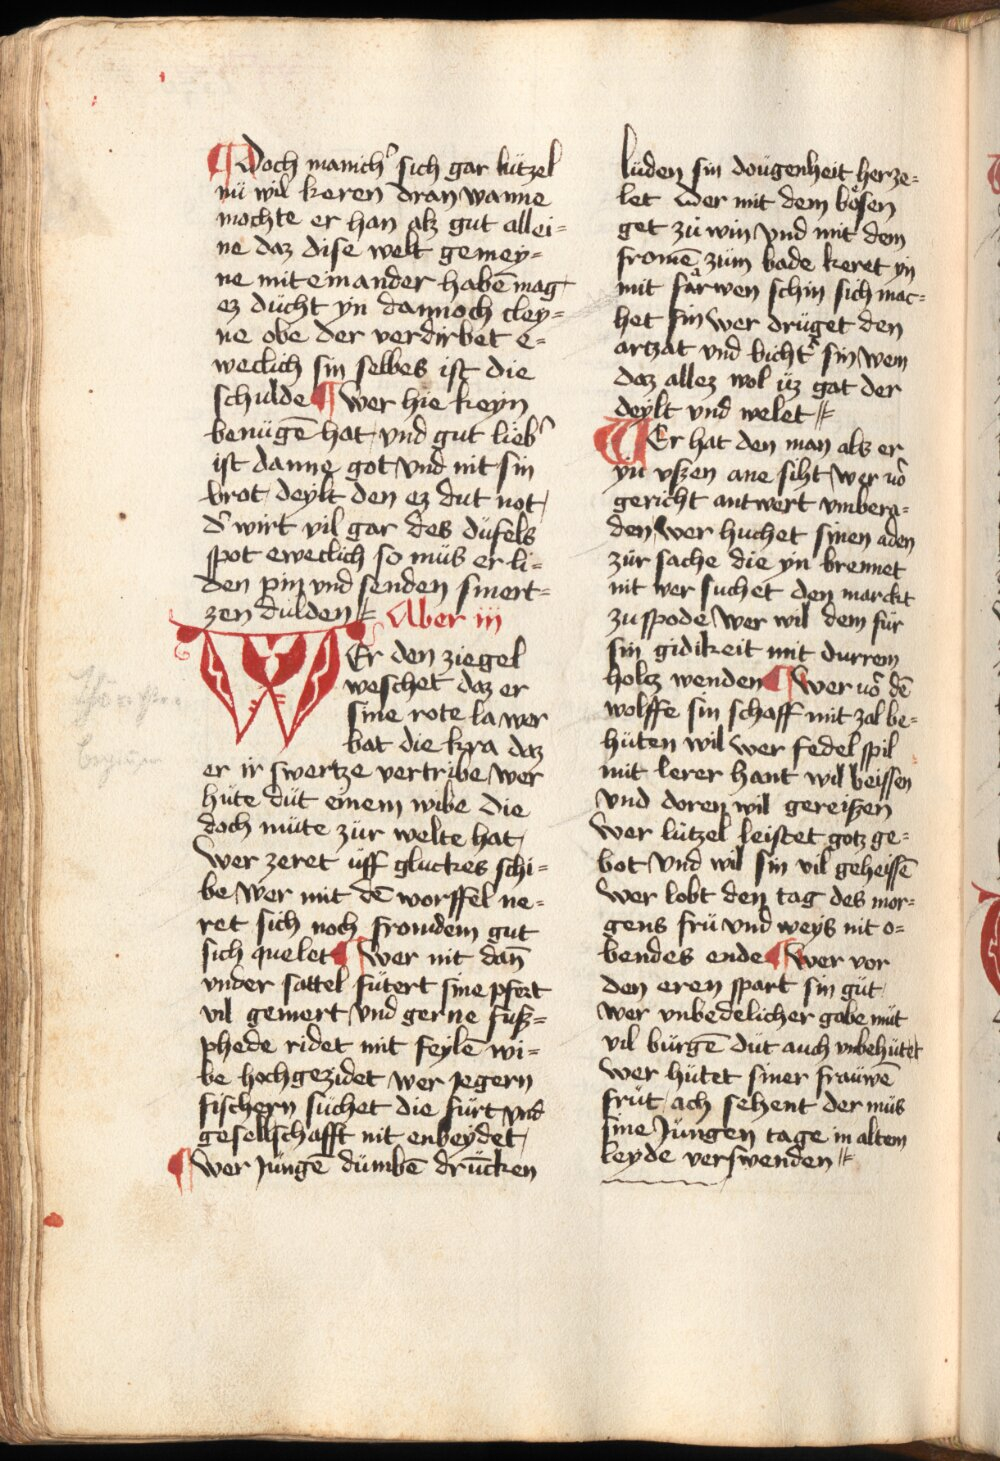 ¶ Doch manich᾽ sich gar lützel
nü wil keren dran wanne
mochte er han alz gut allei=
ne daz dise welt gemey=
ne mit einander habē mag
ez dücht yn dannoch cley=
ne obe der verdirbet e=
weclich sin selbes ist die
schulde ¶ wer hie keyn
benügē hat und gut lieb᾽
ist danne got vnd nit sin
brot deylt den ez dut not
d᾽ wirt vil gar des düfels
spot eweclich so müs er li=
den pin vnd senden smert=
zen dulden Aber iii
WEr den ziegel
weschet daz er
sine rote la wer
bat die kra daz
er ir swertze vertribe wer
hüte düt einem wibe die
doch müte zür welte hat
wer zeret üff gluckes schi=
be wer mit dē worffel ne=
ret sich noch fromdem gut
sich quelet ¶ wer nit dan̄
vnder sattel fütert sine pfert
vil gemert vnd gerne fusz=
phede ridet mit feylē wi=
be hochgezidet wer jegern
fischern süchet die fürt vnd
gesellschafft nit enbeydet
¶ wer jüngē dümbē drücken
lüden sin dougenheit herze=
let wer mit dem bösen
get zü win vnd mit dem
fromē züm bade keret yn
mit farwen schin sich mac=
het sin wer drüget den
artzat vnd bicht᾽ sin wem
daz allez wol üz gat der
deylt und welet
WEr hat den man als er
yn vszen ane siht wer vō
gericht antwert vmbera=
den wer huchet sinen aden
zür sache die yn brennet
nit wer suchet den marckt
zu spode wer wil dem für
sin gidikeit mit durrem
holcz wenden ¶ wer vō dē
wolffe sin schaff mit zal be=
hüten wil wer fedelspil
mit lerer hant wil beissen
vnd doren wil gereiszen
wer lützel leistet gotz ge=
bot vnd wil sin vil geheissē
wer lobt den tag des mor=
gens frü vnd weys nit o=
bendes ende ¶ wer vor
den eren spart sin güt
wer vnbedelicher gabe müt
vil bürgē düt auch vnbehütet
wer hütet siner frauwē
früt ach sehent der müs
sine jüngen tage in altem
leyde verswenden